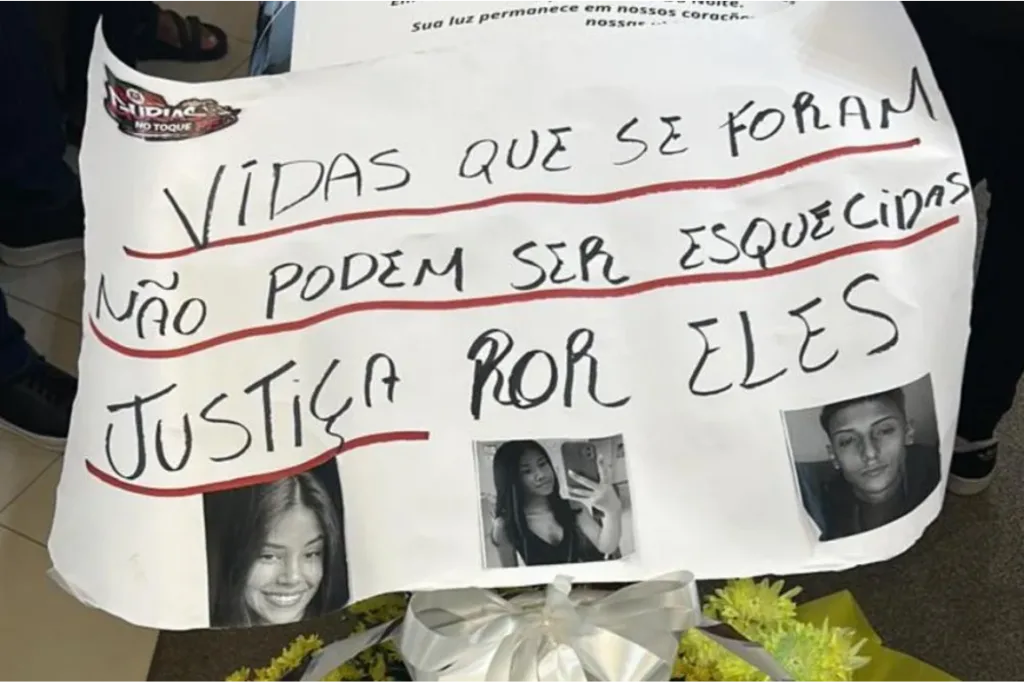 Noite.
Sua luz permanece em nossos corações
NO TOQUE
VIDAS QUE SE FORAM
NÃO PODEM SER ESQUECIDAS
JUSTIÇA POR ELES